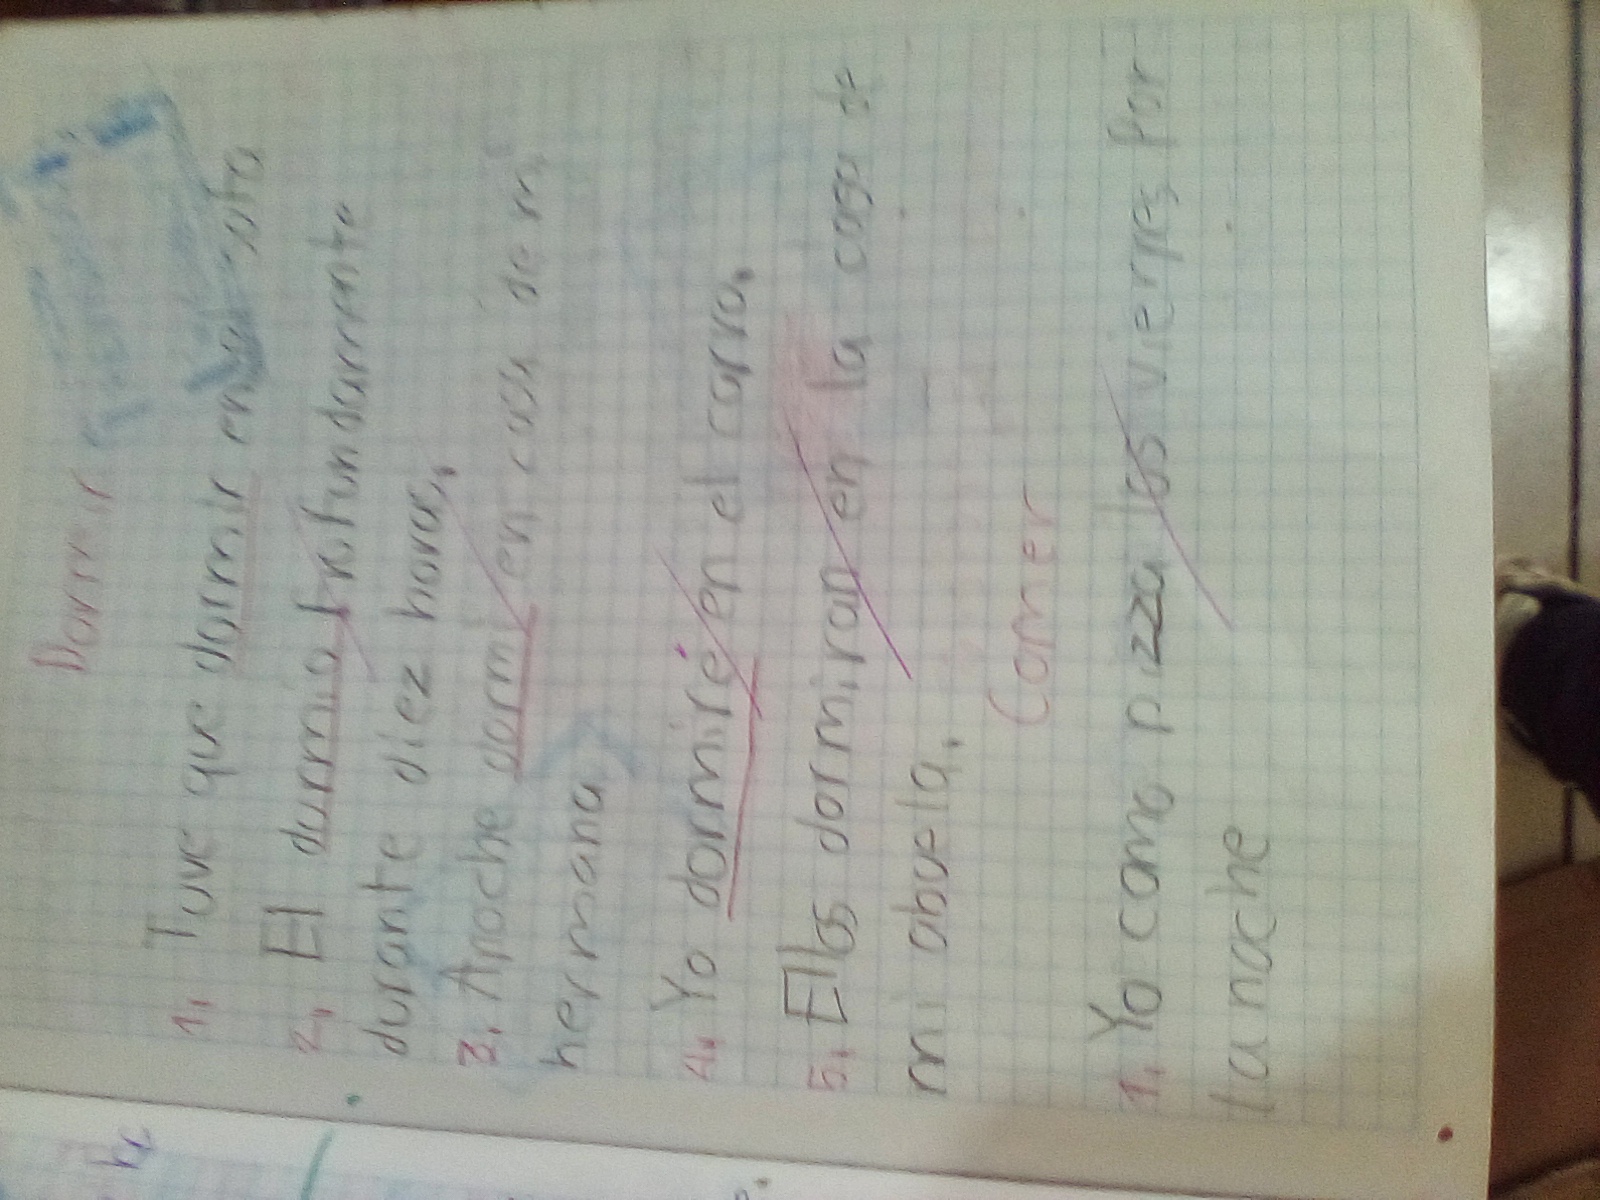 Dormir
1. Tuve que dormir en el sofa
2. El durmio profundamente
durante diez horas.
3. Anoche dormi en casa de mi
hermana
4. Yo dormiré en el carro.
5. Ellos dormiran en la casa de
mi abuela.
Comer
1. Yo como pizza los viernes por
la noche